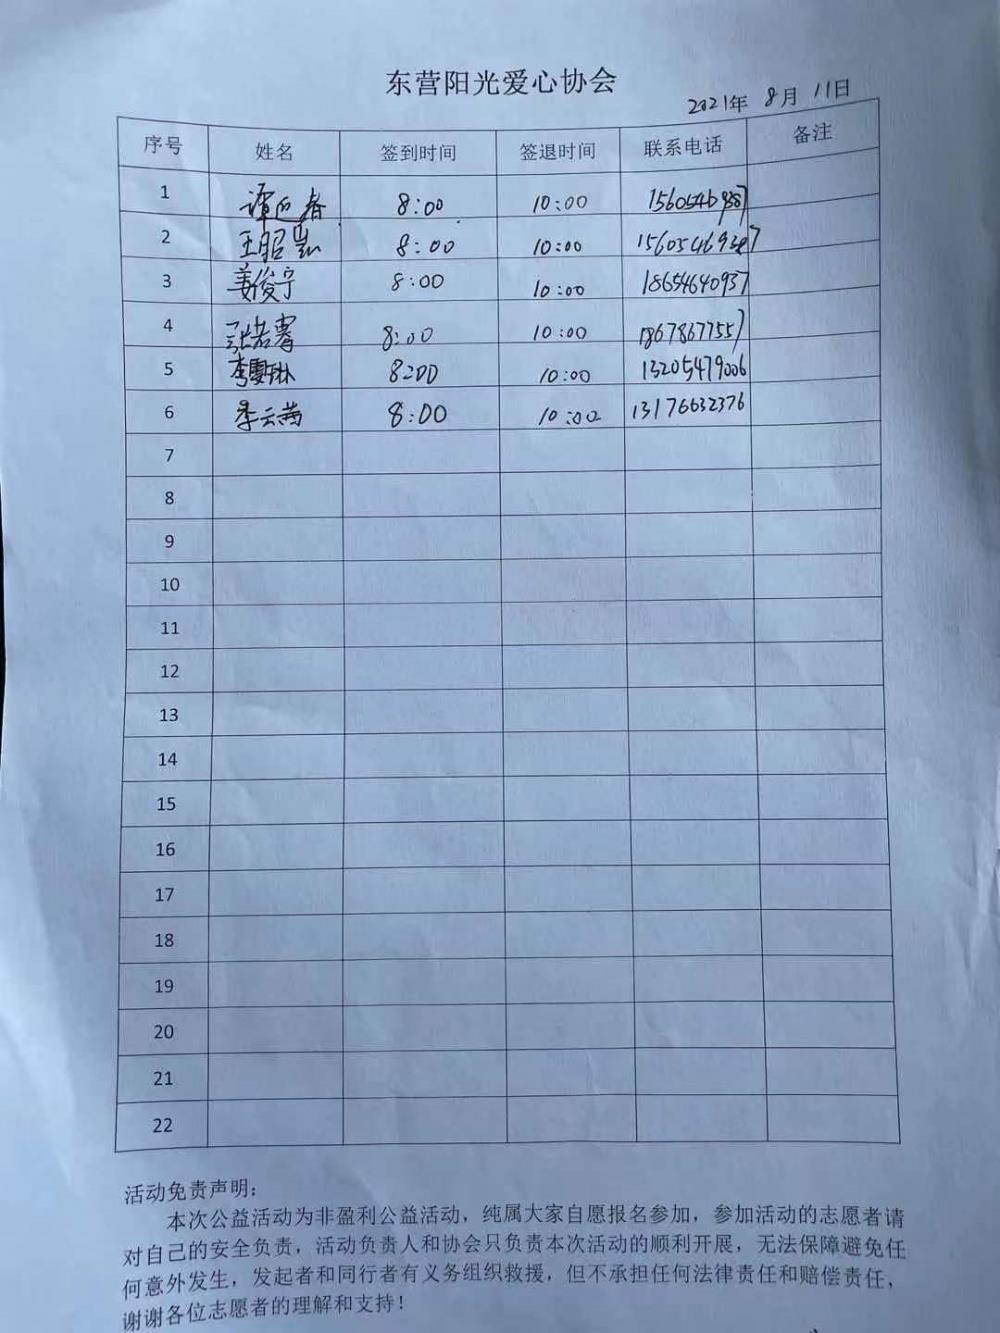 东营阳光爱心协会
2021年 8月 11日
序号 姓名 签到时间 签退时间 联系电话 备注
1 谭迎春 8:00 10:00
2 王昭凯 8:00 10:00
3 姜俊宁 8:00 10:00 18654640937
4 张若馨 8:00 10:00 18678677557
5 李雯琳 8:00 10:00 13205479006
6 李云茜 8:00 10:00 13176632376
7
8
9
10
11
12
13
14
15
16
17
18
19
20
21
22
活动免责声明：
本次公益活动为非盈利公益活动，纯属大家自愿报名参加，参加活动的志愿者请
对自己的安全负责，活动负责人和协会只负责本次活动的顺利开展，无法保障避免任
何意外发生，发起者和同行者有义务组织救援，但不承担任何法律责任和赔偿责任，
谢谢各位志愿者的理解和支持！